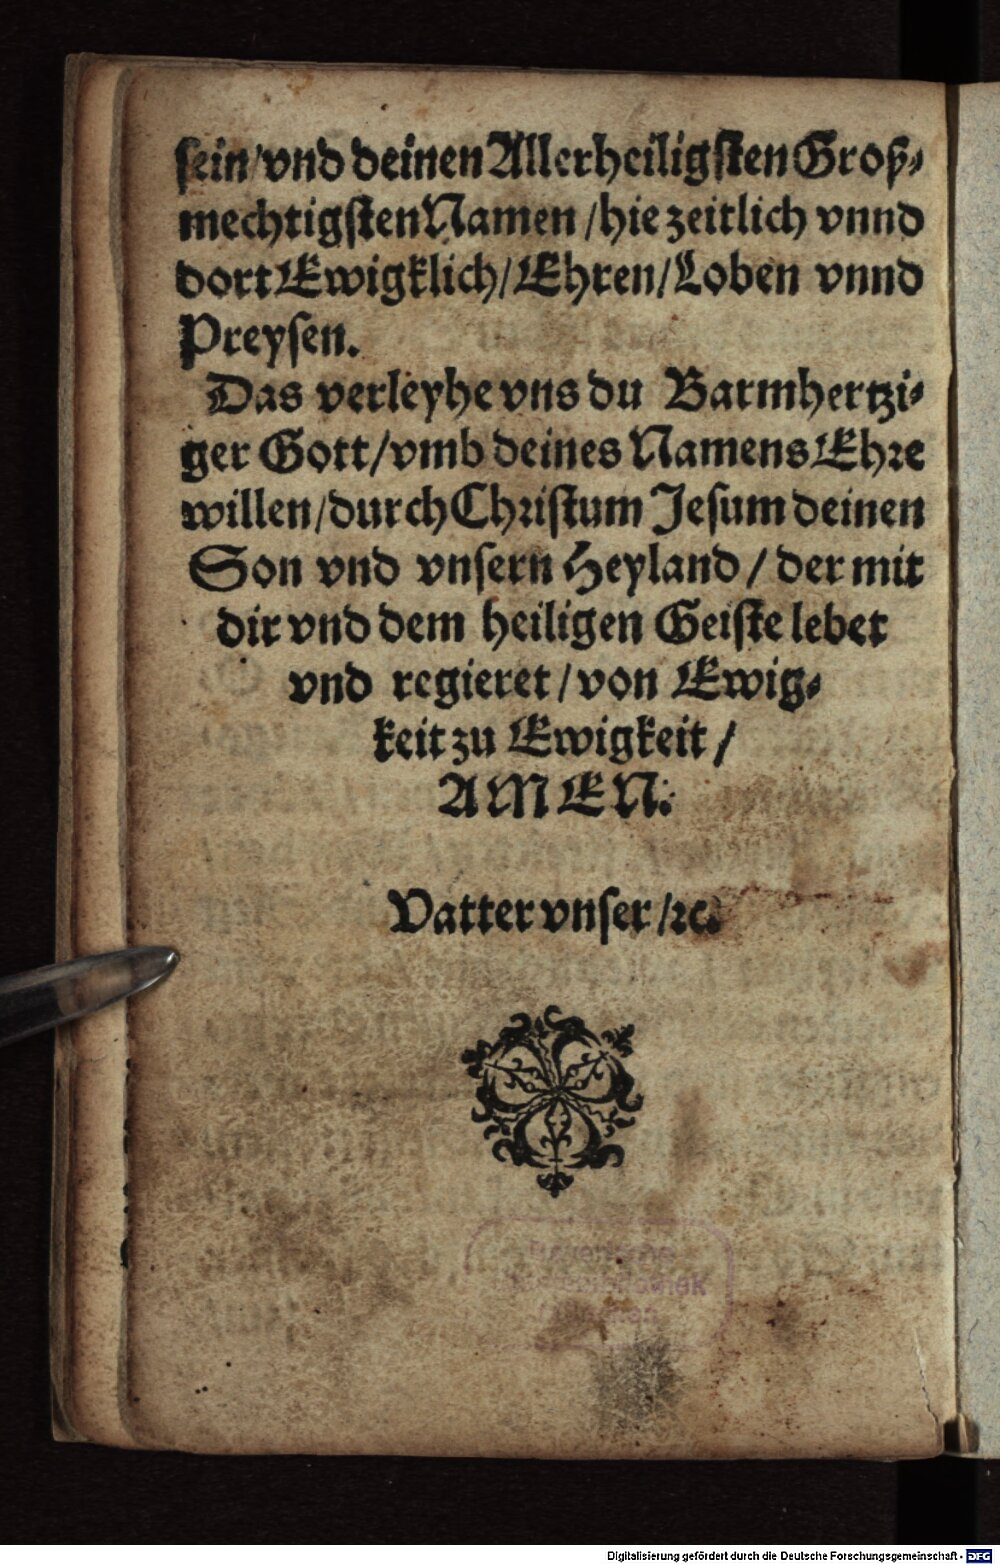 sein/vnd deinen Allerheiligsten Groß-
mechtigsten Namen/hie zeitlich vnnd
dort Ewigklich/Ehren/Loben vnnd
Preysen.
Das verleyhe vns du Barmhertzi-
ger Gott/vmb deines Namens Ehre
willen/durch Christum Jesum deinen
Son vnd vnsern Heyland/der mit
dir vnd dem heiligen Geiste lebet
vnd regieret/von Ewig-
keit zu Ewigkeit/
AMEN.
Vatter vnser/ꝛc.
Bayerische
Staatsbibliothek
München
Digitalisierung gefördert durch die Deutsche Forschungsgemeinschaft - DFG